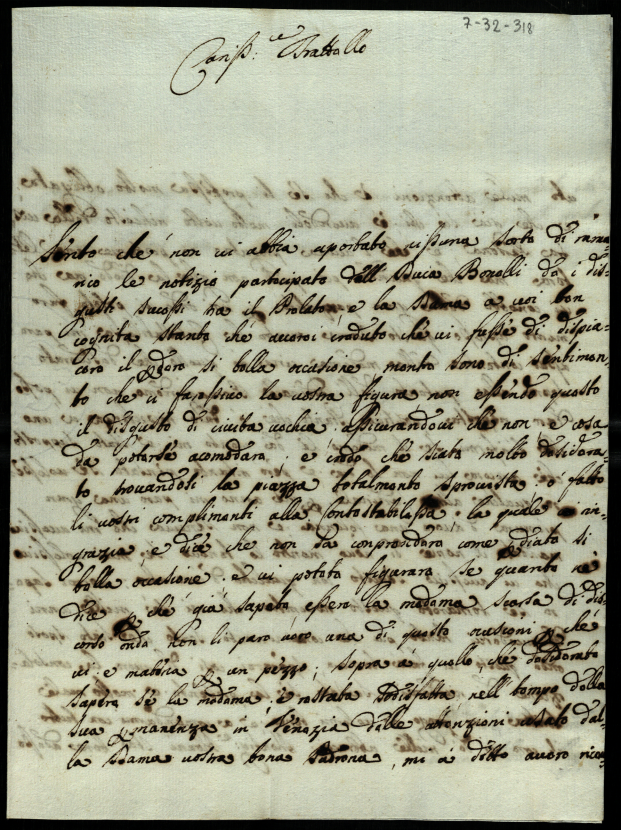 7-32-318
Cariss.mo Fratello
Sento che non vi abbia aportato nissuna sorta di rama=
rico le notizie partecipate dell Bonelli da i dis=
gusti sucessi tra il Prelato, e la Dama a voi ben
cognita stante che averei creduto che vi fusse di dispia=
cere il perdere si bella occasione mentre sono di sentimen=
to che vi facessivo la vostra figura non essendo questo
il disgusto di civita vechia assicurandovi che non e cosa
da potersi acomodare; e credo che siate molto desidera=
to trovandosi la piazza totalmente sprovista o fatto
li vostri complimenti alla Contestabilessa; la quale vi rin=
grazia, e dice che non sa conprendere come perdiate si
bella occasione: e vi potete figurare se quanto ne
dice perche gia sapete essere la madama scarsa di dis
corso onde non li pare vero una di queste ocasioni perche
vi e materia per un pezzo; sopra a quello che desiderate
sapere se la madama e restata sodisfatta nell tempo della
sua permanenza in Venezia delle attenzioni usate dal=
la Dama vostra bona Padrona, mi a detto avere rice=